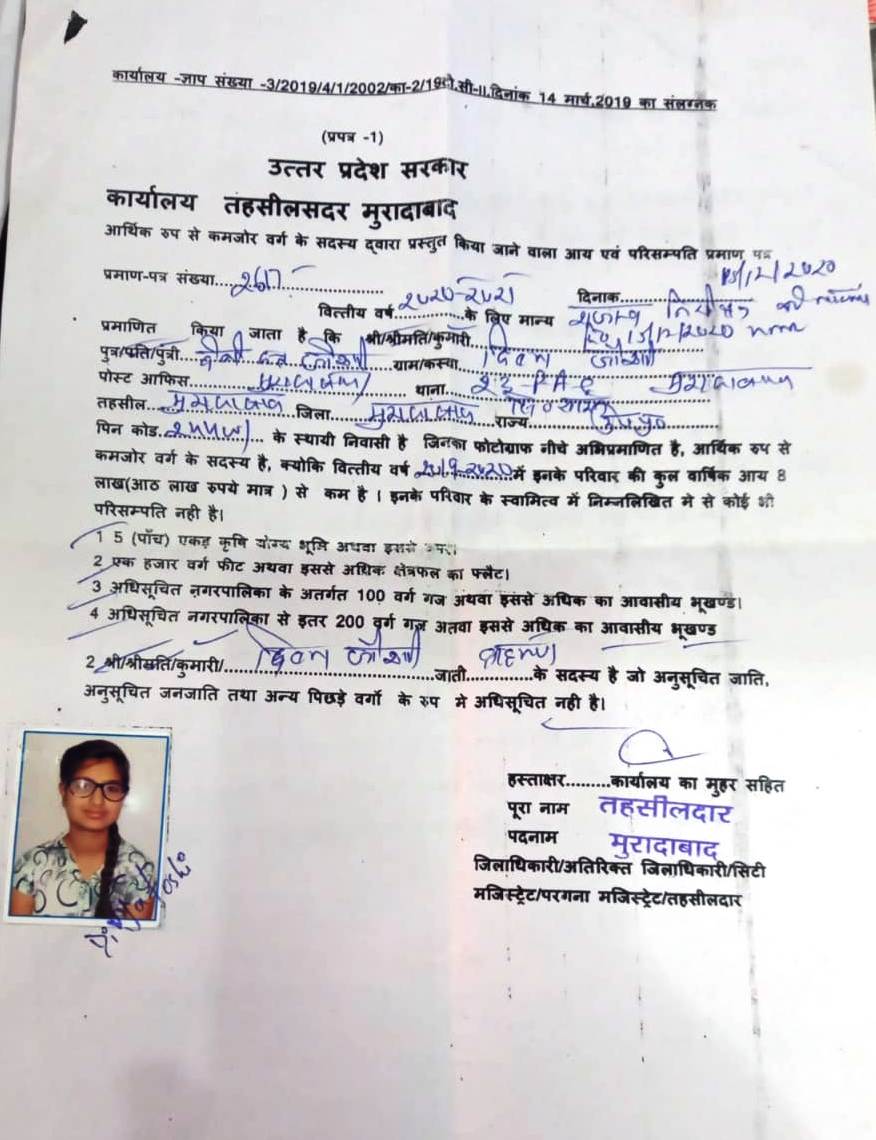 कार्यालय -ज्ञाप संख्या -3/2019/4/1/2002/का-2/19टी.सी-II.दिनांक 14 मार्च.2019 का संलग्नक
(प्रपत्र -1)
उत्तर प्रदेश सरकार
कार्यालय तहसीलसदर मुरादाबाद
आर्थिक रुप से कमजोर वर्ग के सदस्य द्वारा प्रस्तुत किया जाने वाला आय एवं परिसम्पति प्रमाण पत्र
प्रमाण-पत्र संख्या....2617 दिनांक.......15/12/2020
वित्तीय वर्ष २०२०-२०२१ के लिए मान्य
प्रमाणित किया जाता है कि श्री/श्रीमति/कुमारी 15/12/2020
पुत्र/पति/पुत्री जोशी ग्राम/कस्या जोशी
पोस्ट आफिस मुरादाबाद थाना २३-PAC मुरादाबाद
तहसील मुरादाबाद जिला मुरादाबाद राज्य उ०प्र०
पिन कोड के स्थायी निवासी है जिनका फोटोग्राफ नीचे अभिप्रमाणित है, आर्थिक रुप से
कमजोर वर्ग के सदस्य है, क्योकि वित्तीय वर्ष 2019-2020 में इनके परिवार की कुल वार्षिक आय 8
लाख(आठ लाख रुपये मात्र ) से कम है । इनके परिवार के स्वामित्व में निम्नलिखित मे से कोई भी
परिसम्पति नही है।
1 5 (पॉंच) एकड़ कृषि योग्य भूमि अथवा इससे उपर।
2 एक हजार वर्ग फीट अथवा इससे अधिक क्षेत्रफल का फ्लैट।
3 अधिसूचित नगरपालिका के अतर्गत 100 वर्ग गज अथवा इससे अधिक का आवासीय भूखण्ड।
4 अधिसूचित नगरपालिका से इतर 200 वर्ग गज अतवा इससे अधिक का आवासीय भूखण्ड
2 श्री/श्रीमति/कुमारी/ जोशी जाती ब्राहमण के सदस्य है जो अनुसूचित जाति,
अनुसूचित जनजाति तथा अन्य पिछड़े वर्गो के रुप मे अधिसूचित नही है।
हस्ताक्षर.........कार्यालय का मुहर सहित
पूरा नाम तहसीलदार
पदनाम मुरादाबाद
जिलाधिकारी/अतिरिक्त जिलाधिकारी/सिटी
मजिस्ट्रेट/परगना मजिस्ट्रेट/तहसीलदार
Joshi